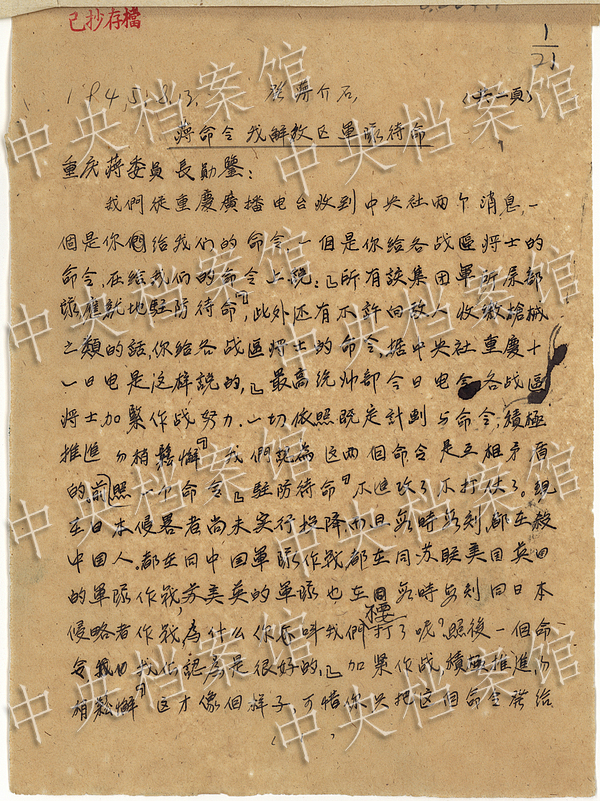 已抄存檔
1/21
1945.8.13. 致蔣介石, (共一頁)
蔣命令我解放区軍隊待命
重庆蔣委員長勛鑒:
我們從重慶廣播电台收到中央社两个消息,一
個是你們给我们的命令,一個是你给各战區將士的
命令,在给我们的命令上說:『所有該集团軍所屬部
隊應就地駐防待命』,此外还有不許向敌人收繳槍械
之類的話,你给各战區將士的命令,据中央社重慶十
一日电是这样說的,『最高统帅部今日电令各战區
將士加緊作战努力,一切依照既定計劃与命令,積極
推進勿稍鬆懈』我們認為这两個命令是互相矛盾
的,前照一个命令『駐防待命』不進攻了不打仗了。現
在日本侵畧者尚未实行投降,而且無時無刻都在殺
中国人,都在同中国軍隊作战,都在同苏联美国英国
的軍隊作战,苏美英的軍隊也在無時無刻同日本
侵略者作战,為什么你要叫我們不打了呢?照後一個命
令我们認為是很好的,『加紧作战,積極推進,勿
稍鬆懈』这才像個样子,可惜你只把这個命令發给
中央档案馆